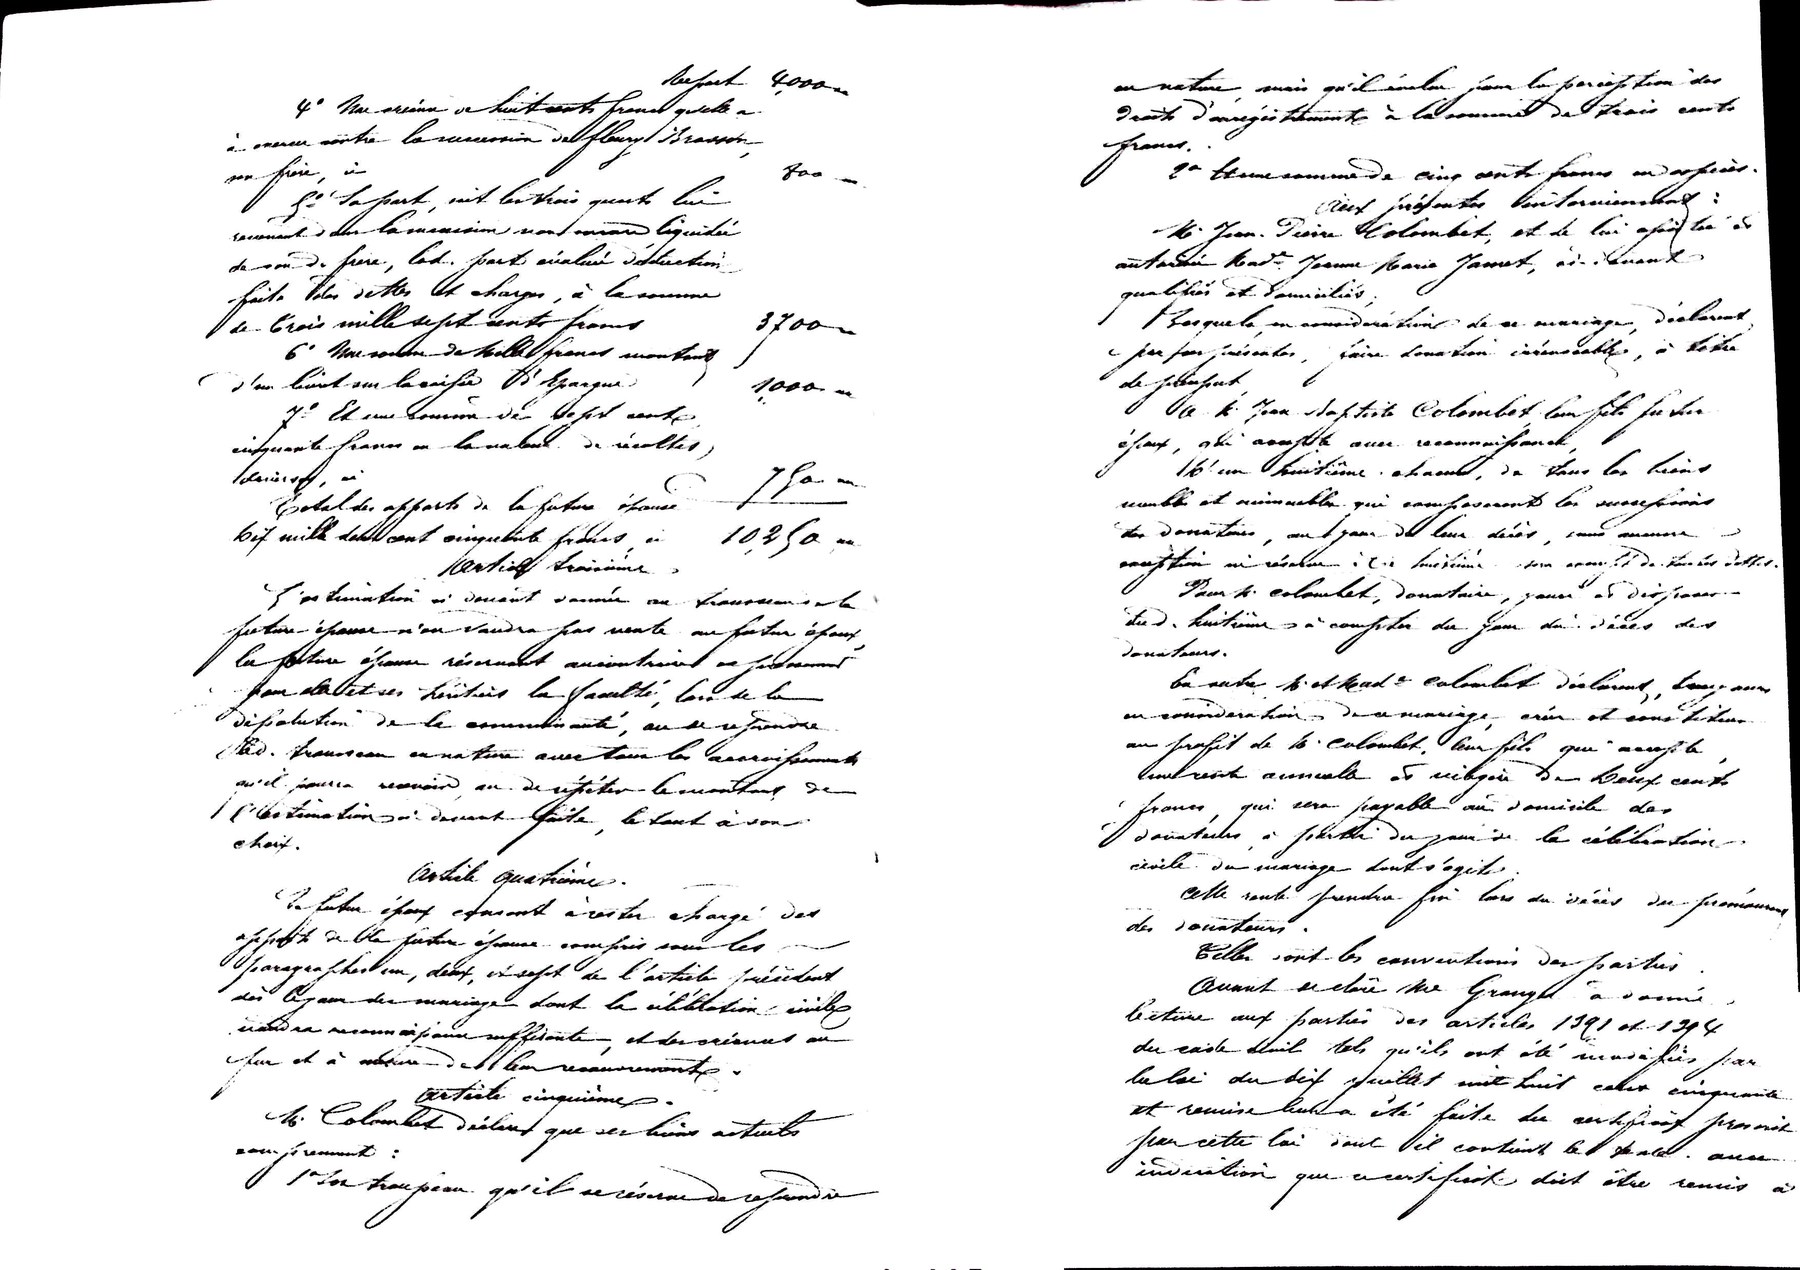 Report 4,000 "
4° Une créance de huit cents francs qu'elle a
à exercer contre la succession de fleury Brosson,
son frère, ci 800 "
5° Sa part, soit les trois quarts lui
revenant dans la succession non encore liquidée
de son d. frère, lad. part évaluée déduction
faite des dettes et charges, à la somme
de Trois mille sept cents francs 3700 "
6° Une somme de Mille francs montant
d'un livret sur la caisse d'Epargne 1,000 "
7° Et une somme de sept cent
cinquante francs en la valeur de récoltes
diverses, ci 750 "
Total des apports de la future épouse
Dix mille deux cent cinquante francs, ci 10,250 "
Article troisième.
L'estimation ci devant donnée au trousseau de la
future épouse n'en vaudra pas vente au futur époux,
la future épouse réservant au contraire expressément
pour elle et ses héritiers la faculté, lors de la
dissolution de la communauté, ou de reprendre
led. trousseau en nature avec tous les accroissements
qu'il pourra recevoir, ou de répéter le montant de
l'estimation ci devant faite, le tout à son
choix.
Article quatrième.
Le futur époux consent à rester chargé des
apports de la future épouse compris sous les
paragraphes un, deux, et sept de l'article précédent
dès le jour du mariage dont la célébration civile
vaudra reconnaissance suffisante, et des créances au
fur et à mesure de leur recouvrement.
Article cinquième.
M. Colombet déclare que ses biens actuels
comprennent :
1° Son troupeau qu'il se réserve de reprendre
en nature, mais qu'il évalue pour la perception des
droits d'enregistrement à la somme de trois cents
francs.
2° Et une somme de cinq cents francs en espèces.
Aux présentes interviennent :
M. Jean-Pierre Colombet, et de lui assistée et
autorisée Mad. Jeanne Marie Jamet, ci-devant
qualifiés et domiciliés,
Lesquels, en considération de ce mariage, déclarent
par ces présentes, faire donation irrévocable, à titre
de préciput
à M. Jean Baptiste Colombet, leur fils futur
époux, qui accepte avec reconnaissance,
D'un huitième chacun, de tous les biens
meubles et immeubles qui composeront les successions
des donateurs, au jour de leur décès, sans aucune
exception ni réserve ; ce huitième sera exempt de toutes dettes.
Pour M. Colombet, donataire, jouir et disposer
dud. huitième à compter du jour du décès des
donateurs.
En outre M. et Mad. Colombet déclarent, toujours
en considération de ce mariage, créer et constituer
au profit de M. Colombet, leur fils qui accepte,
une rente annuelle et viagère de Deux cents
francs, qui sera payable au domicile des
donateurs, à partir du jour de la célébration
civile du mariage dont s'agit.
Cette rente prendra fin lors du décès du prémourant
des donateurs.
Telles sont les conventions des parties.
Avant de clore Me Granger a donné
lecture aux parties des articles 1391 et 1394
du code civil tels qu'ils ont été modifiés par
la loi du dix juillet mil huit cent cinquante
et remise leur a été faite du certificat prescrit
par cette loi dont il contient le texte avec
indication que ce certificat doit être remis à